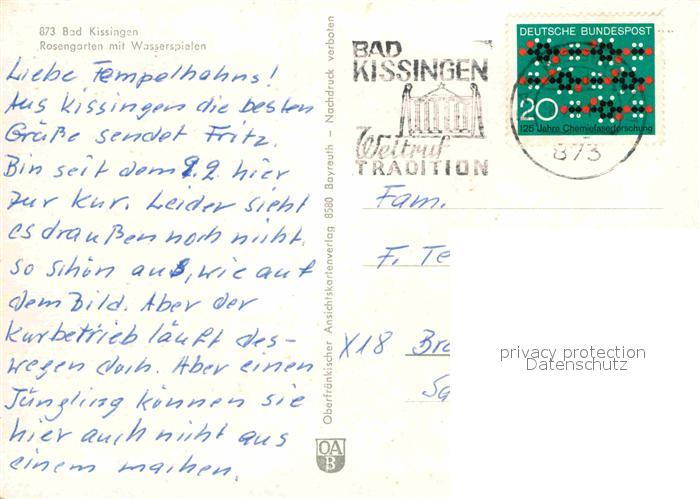 873 Bad Kissingen
Rosengarten mit Wasserspielen
Liebe Tempelhahns!
Aus Kissingen die besten
Grüße sendet Fritz.
Bin seit dem 9.2. hier
zur Kur. Leider sieht
es draußen noch nicht
so schön aus, wie auf
dem Bild. Aber der
Kurbetrieb läuft des-
wegen doch. Aber einen
Jüngling können sie
hier auch nicht aus
einem machen.
Oberfränkischer Ansichtskartenverlag 8580 Bayreuth – Nachdruck verboten
OA
B
BAD
KISSINGEN
Weltruf
TRADITION
873
DEUTSCHE BUNDESPOST
20
125 Jahre Chemiefaserforschung
Fam.
F. Te
X18 Bra
Sa
privacy protection
Datenschutz